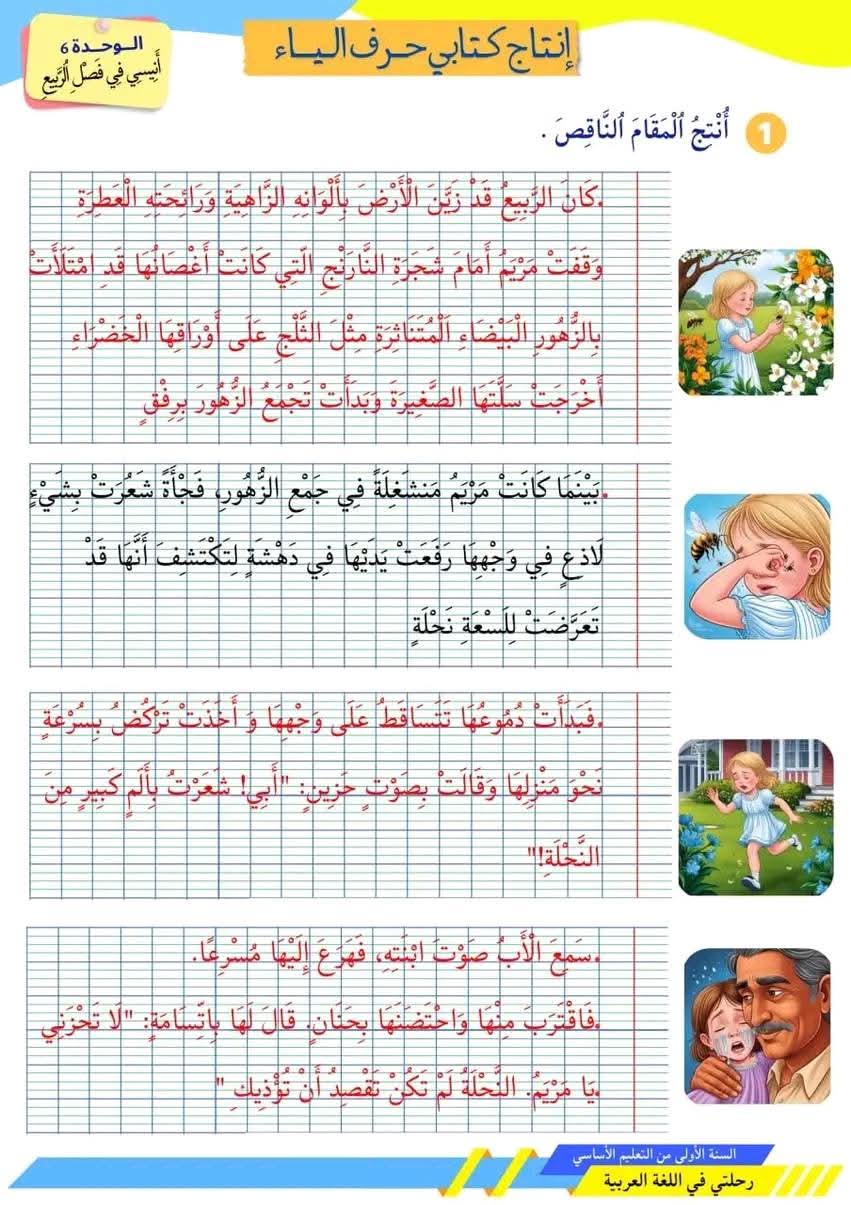 إنتاج كتابي حرف الياء
الـوحـدة 6
أَنِيسِي فِي فَصْلِ الرَّبِيعِ
1 أُنْتِجُ اُلْمَقَامَ اُلنَّاقِصَ .
.كَانَ الرَّبِيعُ قَدْ زَيَّنَ الْأَرْضَ بِأَلْوَانِهِ الزَّاهِيَةِ وَرَائِحَتِهِ الْعَطِرَةِ
وَقَفَتْ مَرْيَمُ أَمَامَ شَجَرَةِ النَّارَنْجِ الَّتِي كَانَتْ أَغْصَانُهَا قَدِ امْتَلَأَتْ
بِالزُّهُورِ الْبَيْضَاءِ اَلْمُتَنَاثِرَةِ مِثْلَ الثَّلْجِ عَلَى أَوْرَاقِهَا الْخَضْرَاءِ
أَخْرَجَتْ سَلَّتَهَا الصَّغِيرَةَ وَبَدَأَتْ تَجْمَعُ الزُّهُورَ بِرِفْقٍ
.بَيْنَمَا كَانَتْ مَرْيَمُ مَنشَغِلَةً فِي جَمْعِ الزُّهُورِ، فَجْأَةً شَعُرَتْ بِشَيْءٍ
لَاذعٍ فِي وَجْهِهَا رَفَعَتْ يَدَيْهَا فِي دَهْشَةٍ لِتَكْتَشِفَ أَنَّهَا قَدْ
تَعَرَّضَتْ لِلَسْعَةِ نَحْلَةٍ
.فَبَدَأَتْ دُمُوعُهَا تَتَسَاقَطُ عَلَى وَجْهِهَا وَ أَخَذَتْ تَرْكُضُ بِسُرْعَةٍ
نَحْوَ مَنْزِلِهَا وَقَالَتْ بِصَوْتٍ حَزِينٍ: "أَبِي! شَعَرْتُ بِأَلَمٍ كَبِيرٍ مِنَ
النَّحْلَةِ!"
.سَمِعَ الْأَبُ صَوْتَ ابْنَتِهِ، فَهَرَعَ إِلَيْهَا مُسْرِعًا.
.فَاقْتَرَبَ مِنْهَا وَاحْتَضَنَهَا بِحَنَانٍ. قَالَ لَهَا بِابْتِسَامَةٍ: "لَا تَحْزَنِي
.يَا مَرْيَمُ. النَّحْلَةُ لَمْ تَكُنْ تَقْصِدُ أَنْ تُؤْذِيكِ "
السنة الأولى من التعليم الأساسي
رحلتي في اللغة العربية